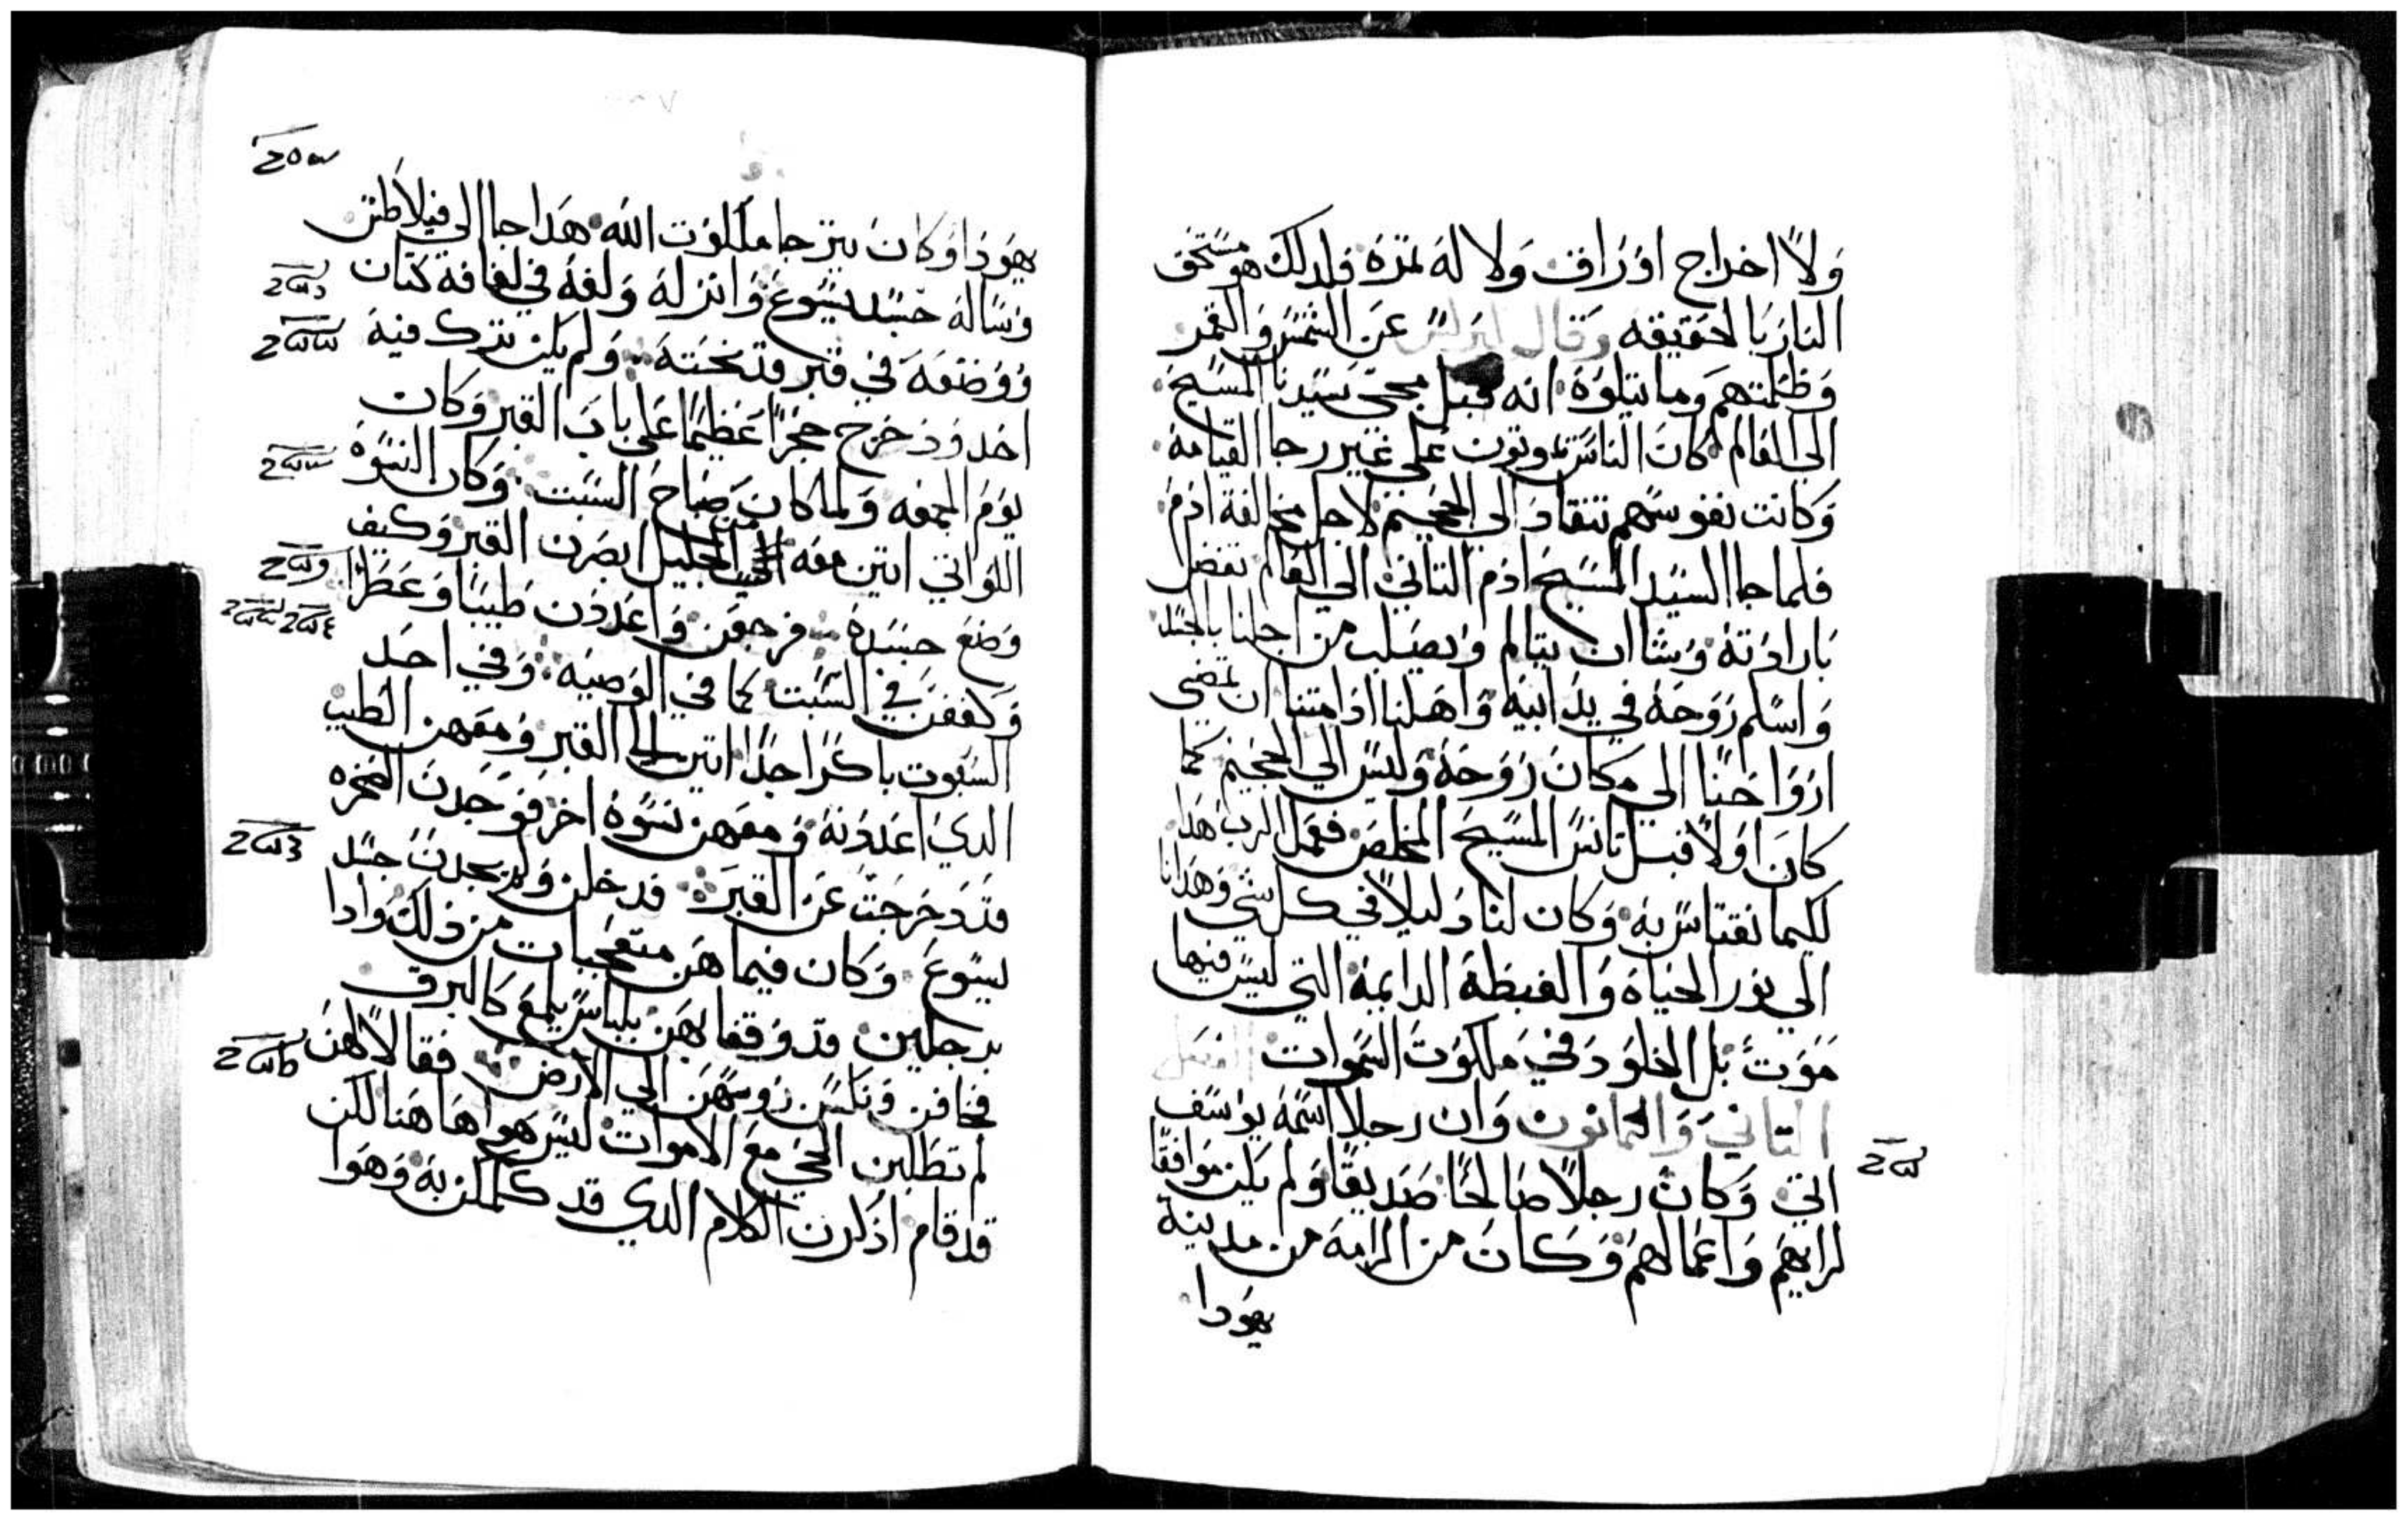 ولا اخراج اوراق ولا له تمره فلدلك هو مستحق
النار بالحقيقه وقال لبرلس عن الشمس والقمر
وظلمتهم وما يتلوه انه قبل مجي سيدنا المسيح
الي العالم كان الناس يموتون علي غير رجا القيامة
وكانت نفوسهم تنقاد الي الجحيم لاجل مخالفة ادم
فلما جا السيد المسيح ادم التاني الي العالم تفضل
بارادته وشا ان يتالم ويصلب من اجلنا بالجسد
واسلم روحة في يد ابية واهلنا ادا متنا ان تمضي
ارواحنا الي مكان روحة وليس الي الجحيم كما
كان اولا قبل تانس المسيح المخلص ففعل الرب هدا
لكيما نقتاس به وكان لنا دليلا في كل شي وهدانا
الي نور الحياة والغبطة الدايمة التي ليس فيها
موت بل الخلود في ملكوت السموات الفصل
التاني والتمانون وان رجلا اسمة يوسف
اتي وكان رجلا صالحا صديقا ولم يكن موافقا
لرايهم واعمالهم وكان من الرامة من مدينة
يهودا
يهودا وكان يترجا ملكوت الله هدا جا الي فيلاطس
وساله جسد يسوع وانزله ولفه في لفافة كتان
ووضعه في قبر قد نحته ولم يكن ترك فيه
احد ودحرج حجرا عظيما علي باب القبر وكان
يوم الجمعه ولما كان صباح السبت وكان النسوة
اللواتي اتين معه من الجليل ابصرن القبر وكيف
وضع جسده فرجعن واعددن طيبا وعطرا
وكففن في السبت كما في الوصيه وفي احد
السبوت باكرا جدا اتين الي القبر ومعهن الطيب
الدي اعددنه ومعهن نسوة اخر فوجدن الصخره
قد دحرجت عن القبر فدخلن ولم يجدن جسد
يسوع وكان فيما هن متعجبات من دلك وادا
برجلين قد وقفا بهن بلباس يلمع كالبرق
فخافن ونكسن روسهن الي الارض فقالا لهن
لم تطلبن الحي مع الاموات ليس هوا هاهنا لكن
قد قام ادكرن الكلام الدي قد كلمكن به وهوا